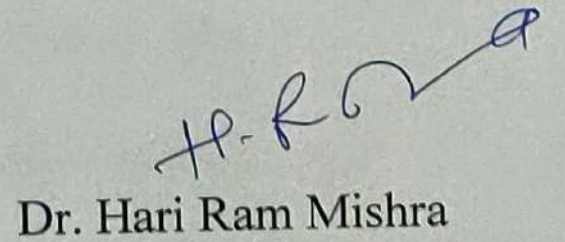 Dr. Hari Ram Mishra